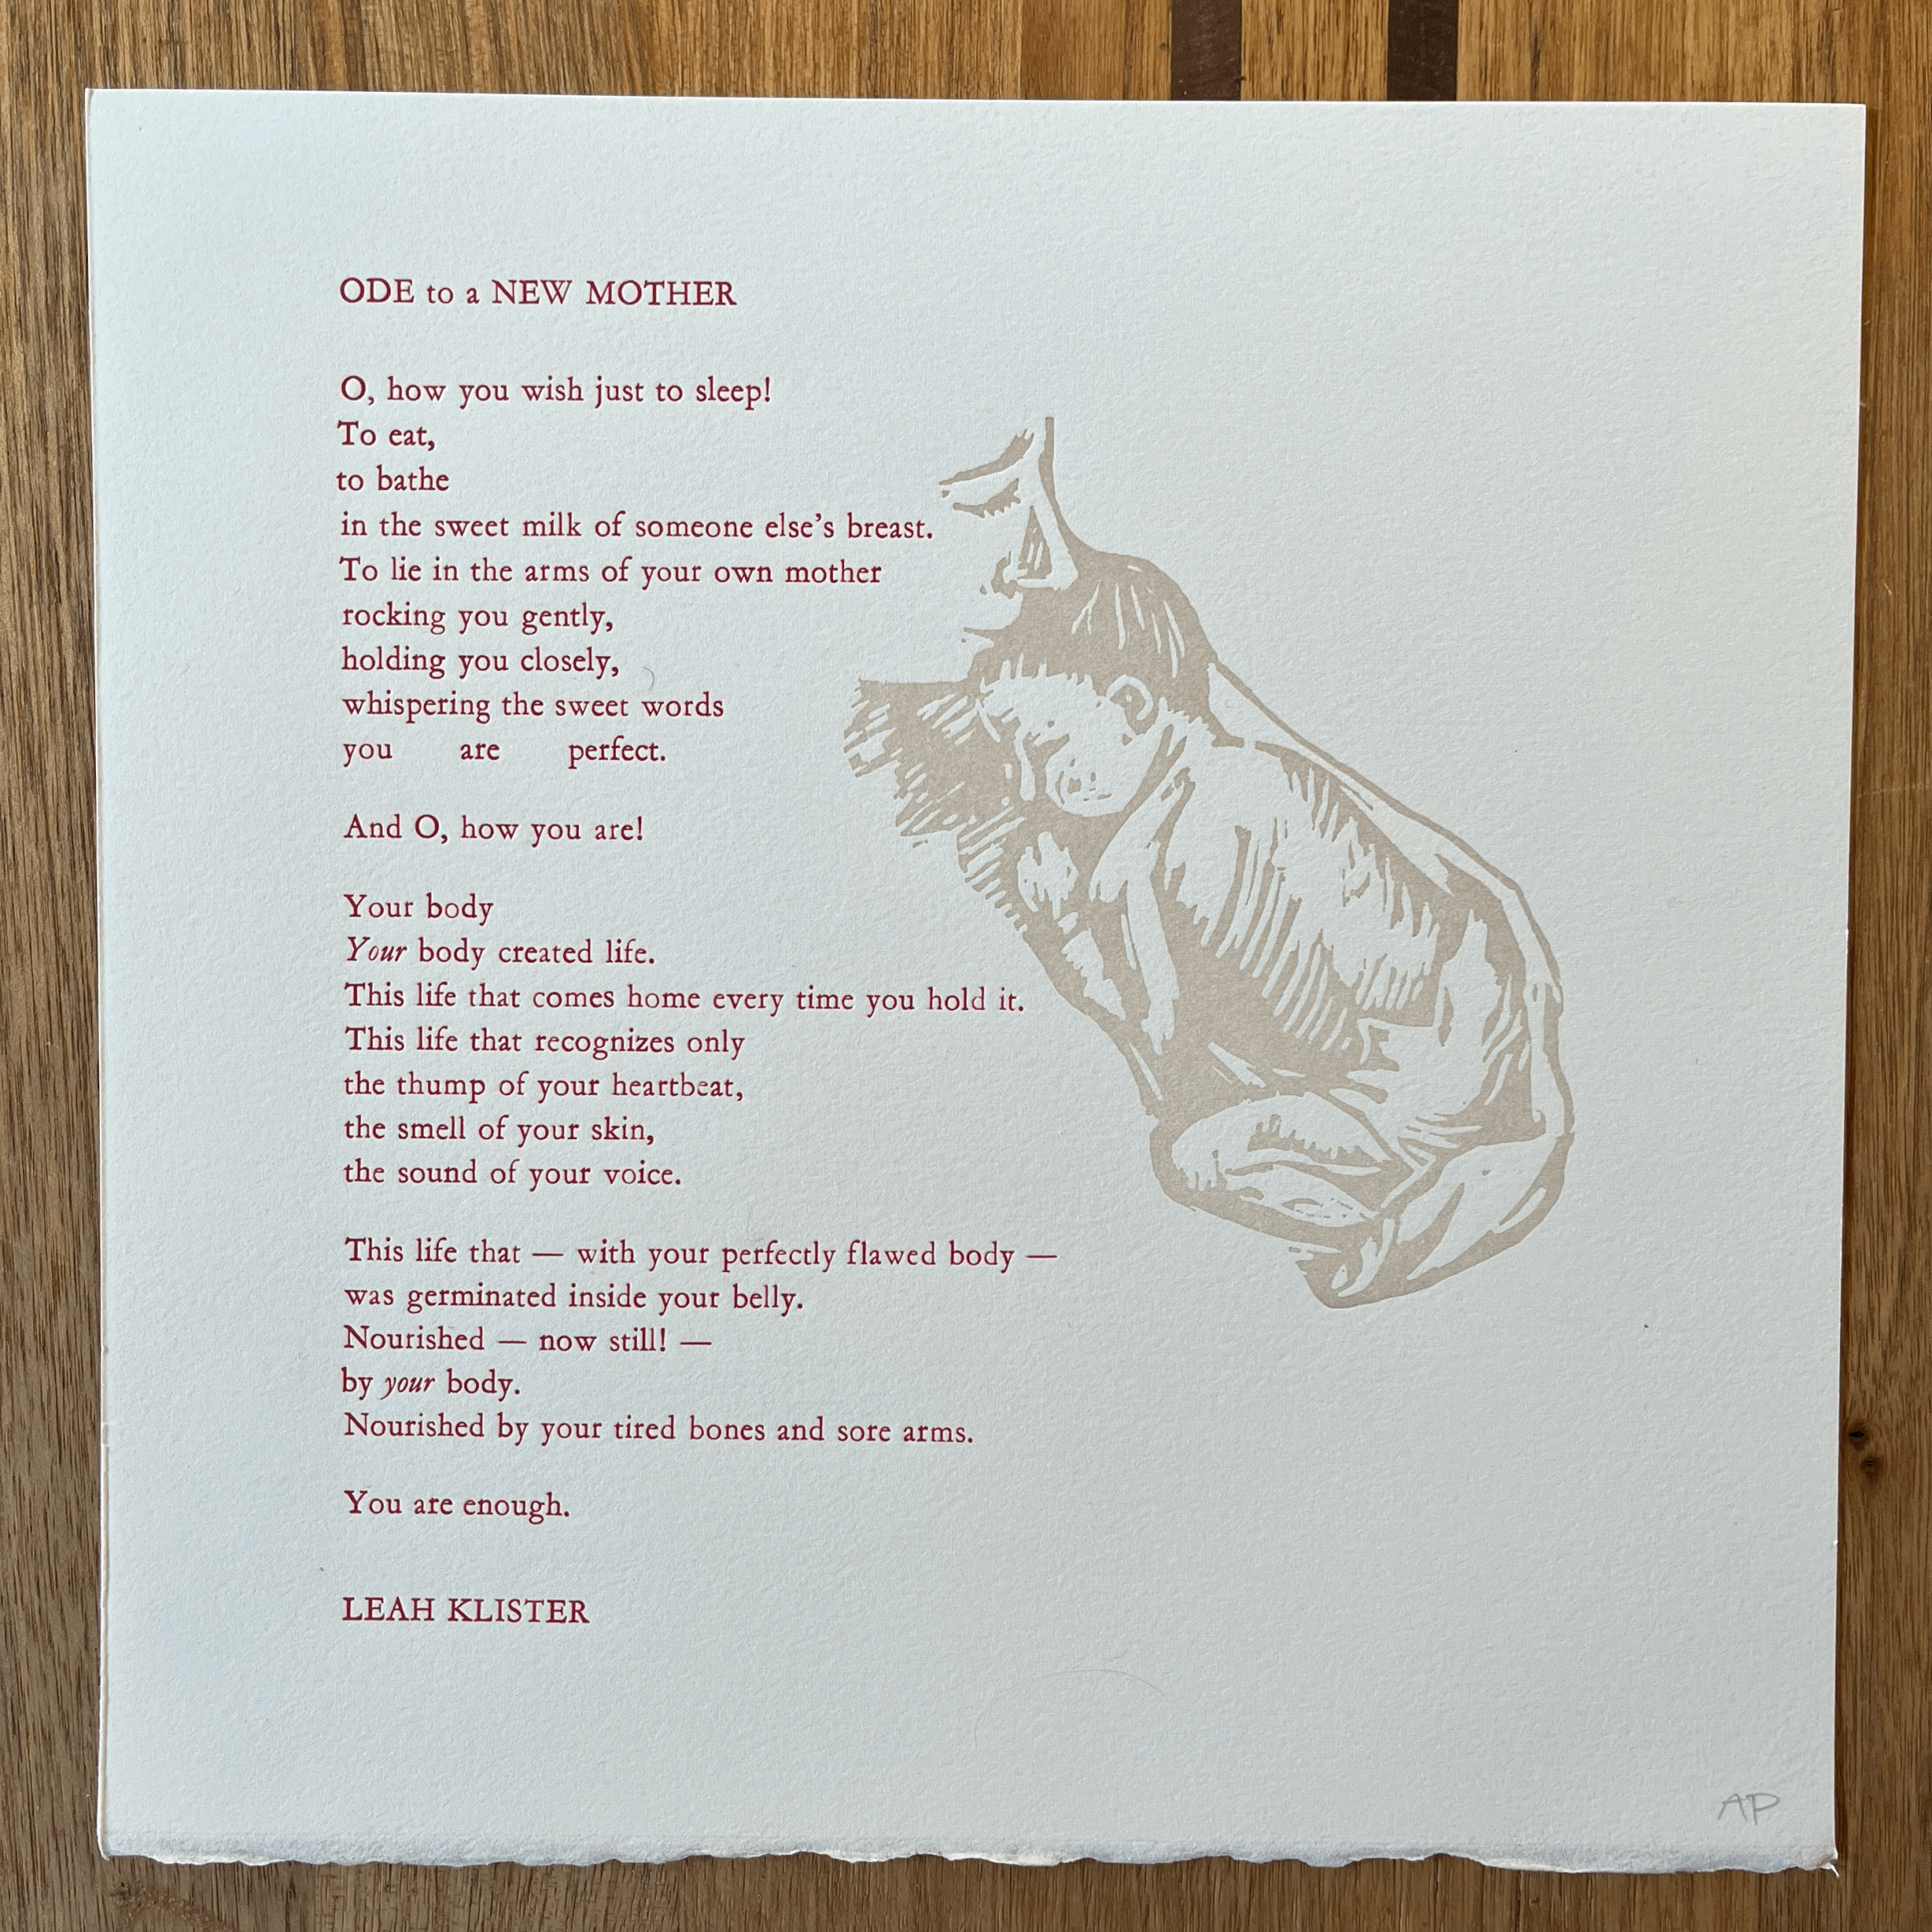 ODE to a NEW MOTHER
O, how you wish just to sleep!
To eat,
to bathe
in the sweet milk of someone else's breast.
To lie in the arms of your own mother
rocking you gently,
holding you closely,
whispering the sweet words
you are perfect.
And O, how you are!
Your body
Your body created life.
This life that comes home every time you hold it.
This life that recognizes only
the thump of your heartbeat,
the smell of your skin,
the sound of your voice.
This life that — with your perfectly flawed body —
was germinated inside your belly.
Nourished — now still! —
by your body.
Nourished by your tired bones and sore arms.
You are enough.
LEAH KLISTER
AP